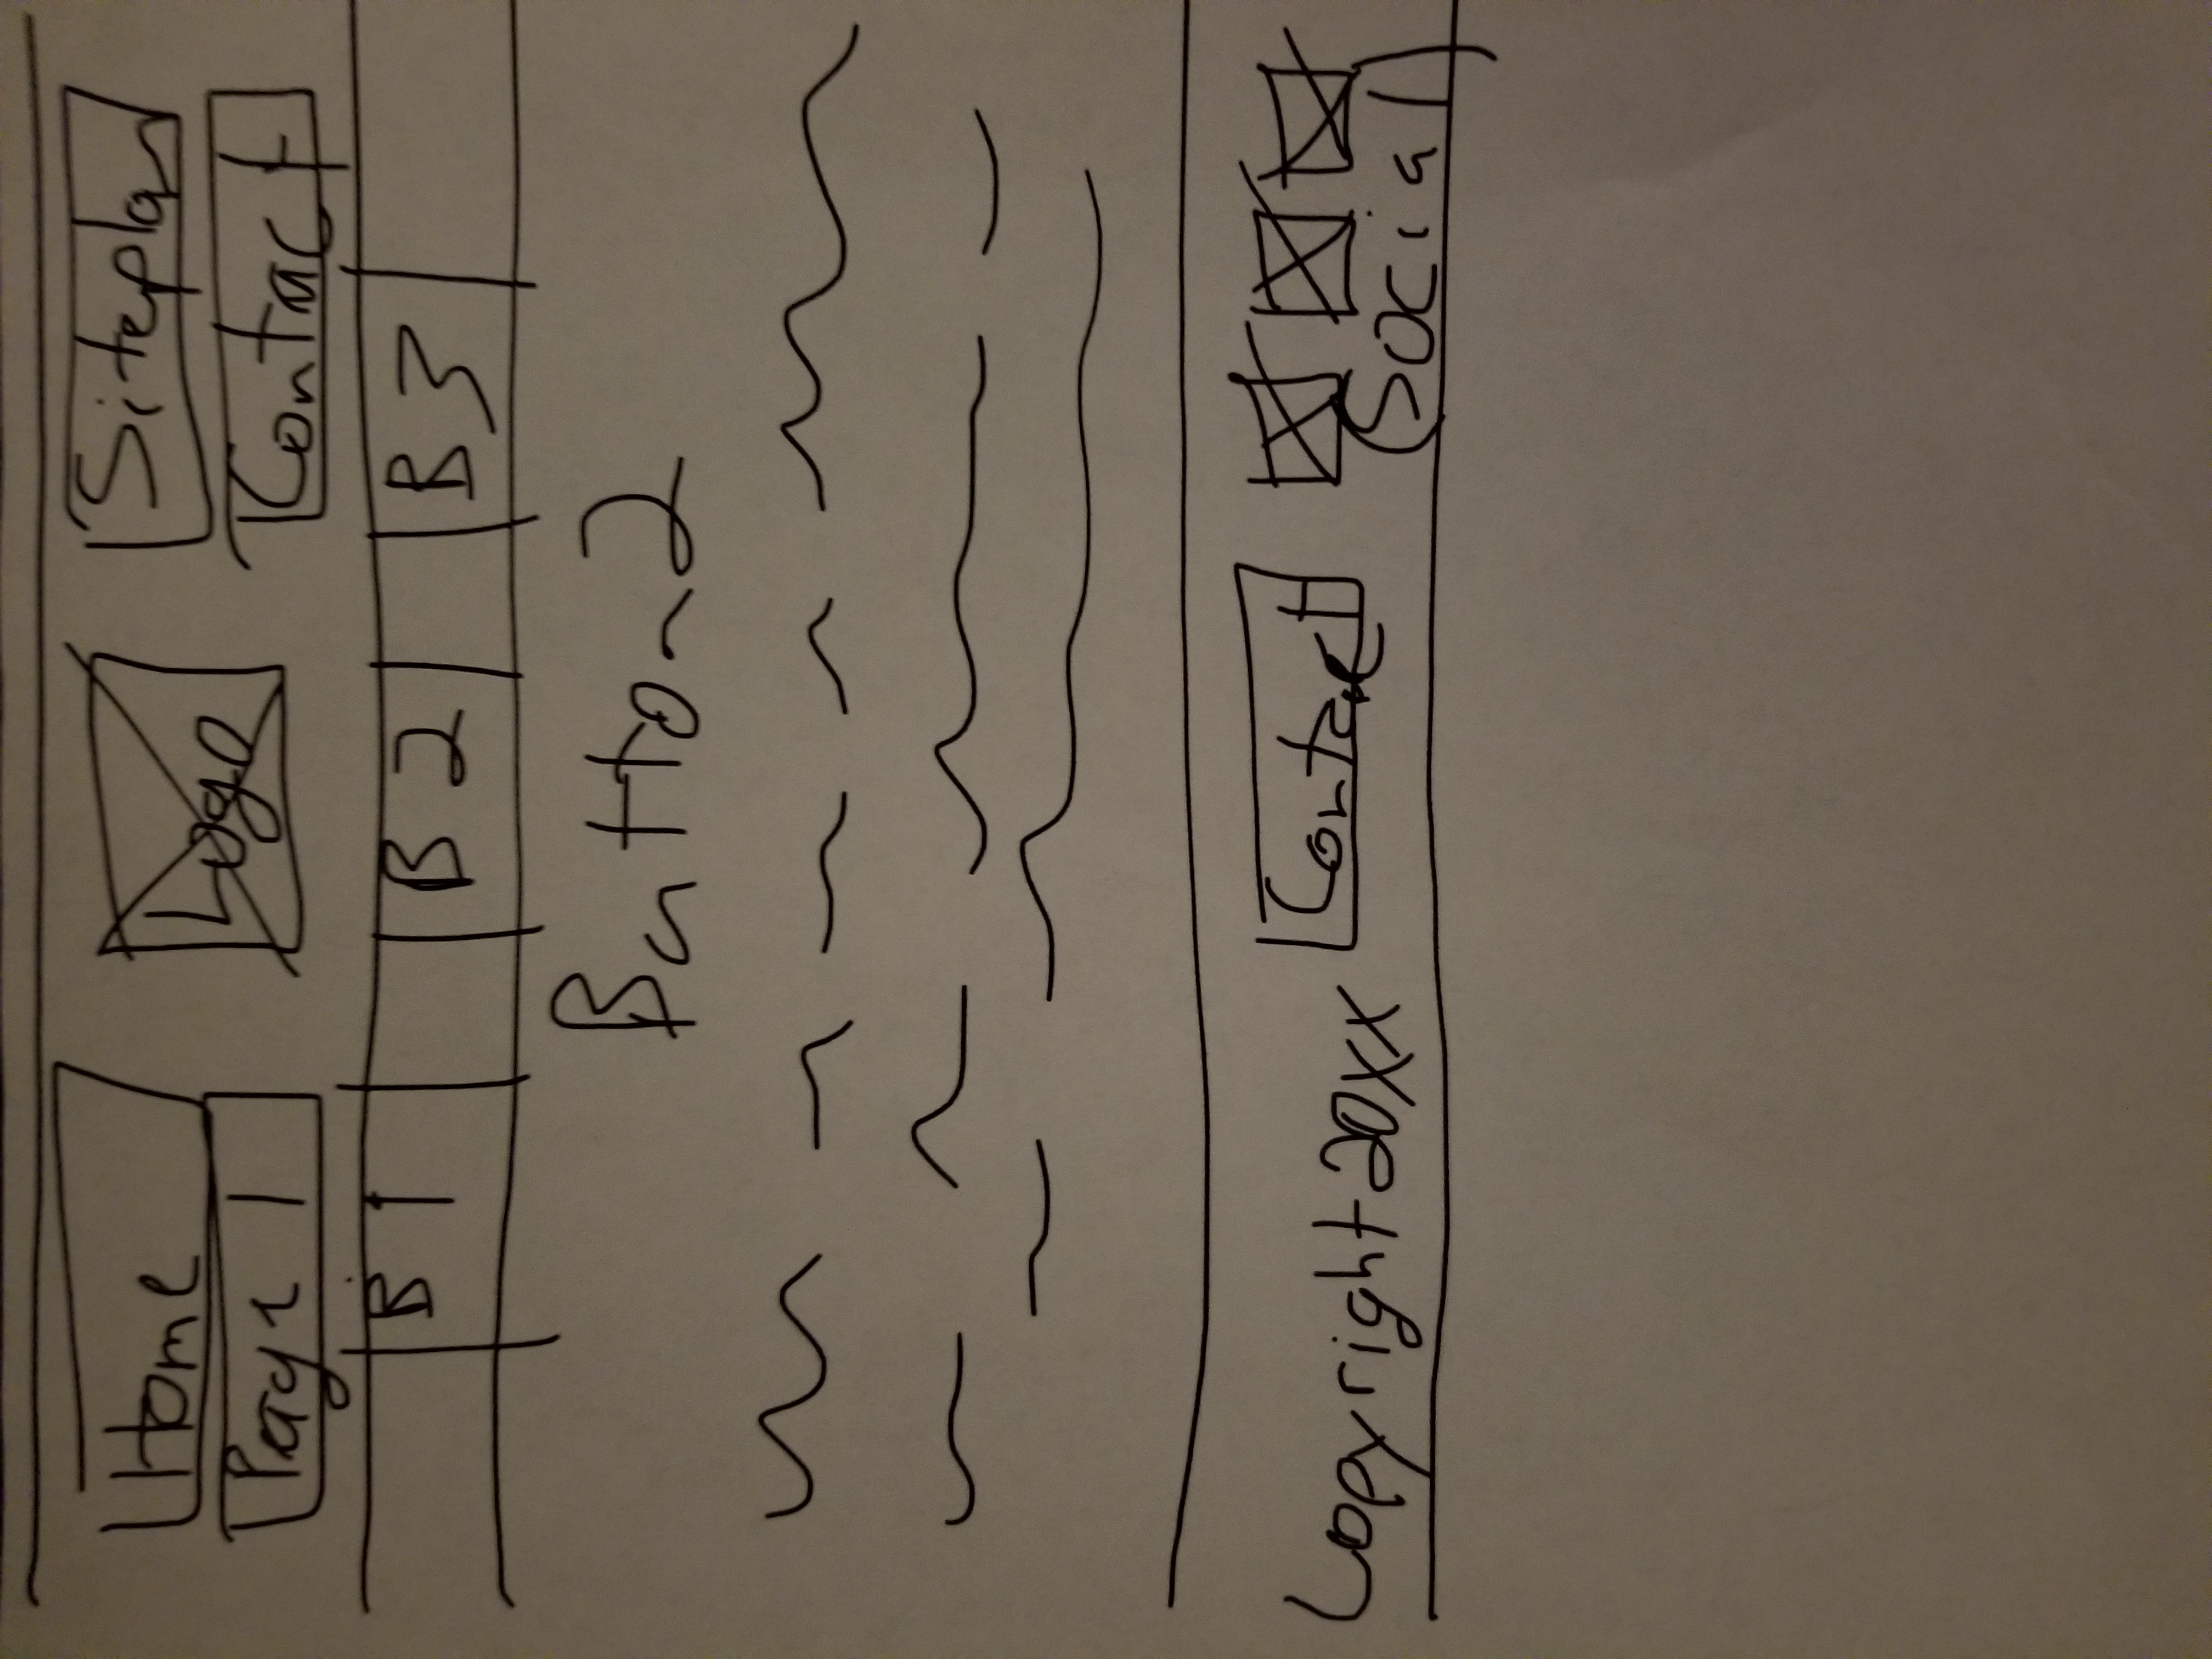 Home
Logo
Siteplan
Page 1
Contact
B 1
B 2
B 3
Button 2
Copyright 20xx
Contact
(Social)